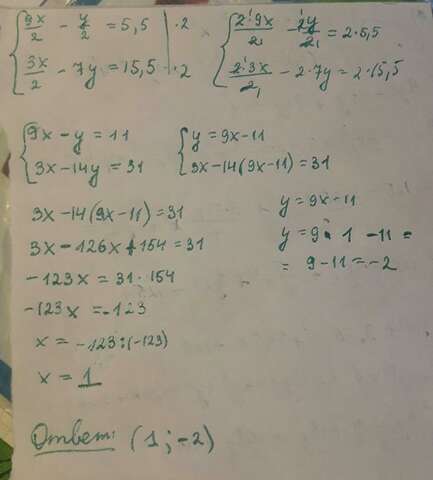 { 9x/2 - y/2 = 5,5 | ·2
{ 3x/2 - 7y = 15,5 | ·2
{ 2·9x/2 - 2y/2 = 2·5,5
{ 2·3x/2 - 2·7y = 2·15,5
{ 9x - y = 11
{ 3x - 14y = 31
{ y = 9x - 11
{ 3x - 14(9x - 11) = 31
3x - 14(9x - 11) = 31
3x - 126x + 154 = 31
-123x = 31 · 154
-123x = -123
x = -123 : (-123)
x = 1
y = 9x - 11
y = 9 · 1 - 11 =
= 9 - 11 = -2
Ответ: (1; -2)